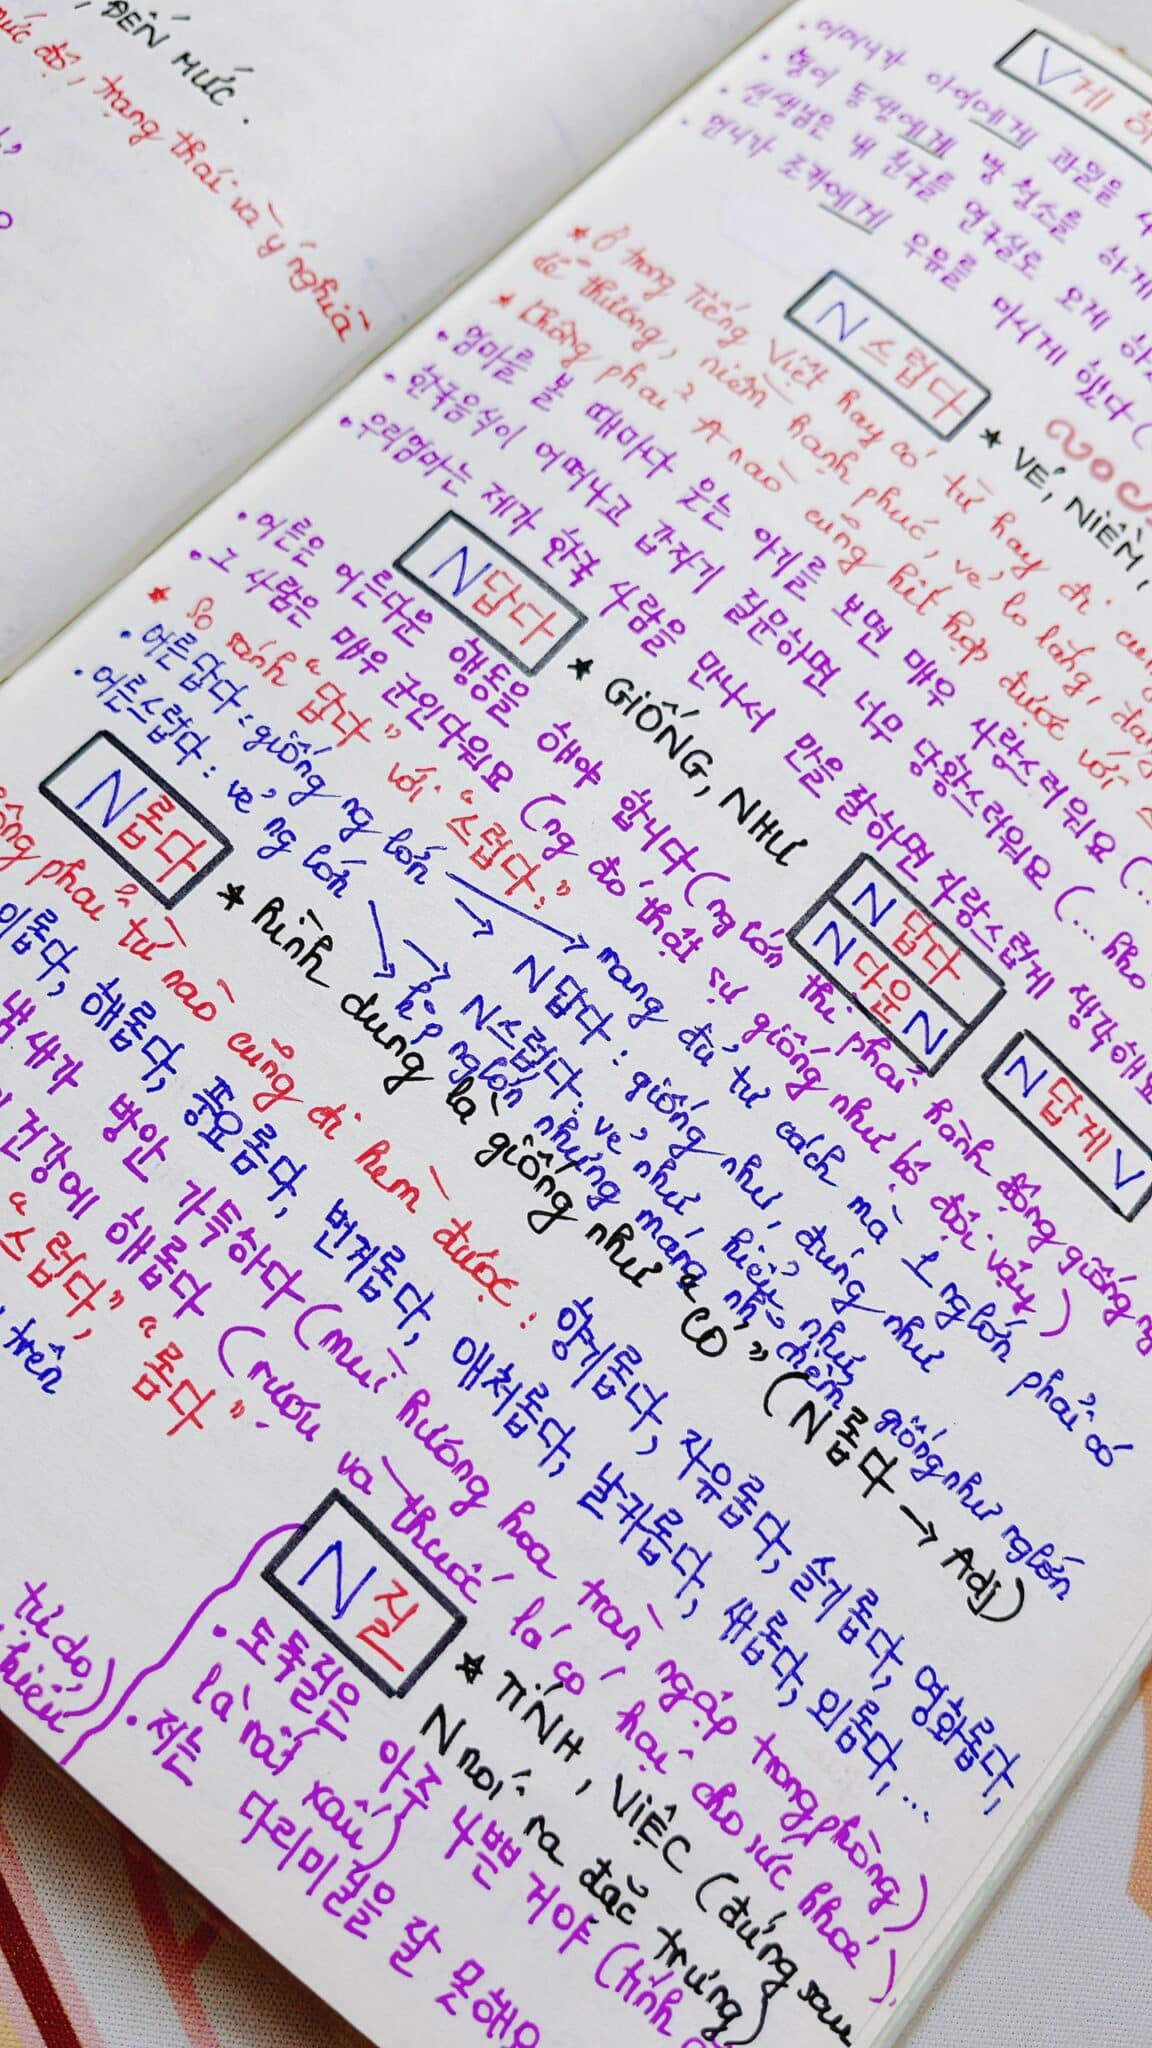 , ĐẾN MỨC.
mức độ, trạng thái và ý nghĩa
V게 하
• 어머니가 아이에게 과일을
• 형이 동생에게 방 청소를 하게
• 선생님은 내 친구를 연구실로 오게 하
• 언니가 조카에게 우유를 마시게 했다 (
N스럽다
★ VẺ, NIỀM,
★ Ở trong Tiếng Việt hay có từ hay đi
dễ thương, niềm hạnh phúc, vẻ lo lắng,
★ Không phải A nào cũng kết hợp được với
• 엄마를 볼 때마다 웃는 아기를 보면 매우 사랑스러워요 (...
• 한국음식이 어떠냐고 갑자기 질문하면 너무 당황스러워요 (... kho
• 우리엄마는 제가 한국 사람을 만나서 말을 잘하면 자랑스럽게 생각해요
N답다
★ GIỐNG, NHƯ
N답다
N다운 N
N답게 V
• 어른은 어른다운 행동을 해야 합니다 (ng lớn thì phải hành động giống ng
• 그 사람은 매우 군인다워요 (ng đó thật sự giống như bộ đội vậy)
★ So sánh "답다" với "스럽다":
• 어른답다: giống ng lớn → mang đủ tư cách mà 1 ng lớn phải có
→ N답다: giống như, đúng như
• 어른스럽다: vẻ ng lớn
→ N스럽다: vẻ như,
→ k p ng lớn nhưng mang giống như ng lớn
N롭다
★ hình dung là giống như "CÓ" (N롭다 → Adj)
ông phải từ nào cũng đi kèm được: 향기롭다, 자유롭다, 슬기롭다, 영화롭다,
해롭다, 풍요롭다, 번거롭다, 애처롭다, 날카롭다, 새롭다, 외롭다, ...
냄새가 방안 가득하다 (mùi hương hoa tràn ngập trong phòng)
건강에 해롭다 (rượu và thuốc lá có hại cho sức khoẻ).
"스럽다", "롭다"
trên
N질
★ TÍNH, VIỆC (đứng sau
N nói ra đặc trưng)
• 도둑질은 아주 나쁜 거야 (tính
là rất xấu)
• 저는 다리미질을 잘 못해요
tự do)